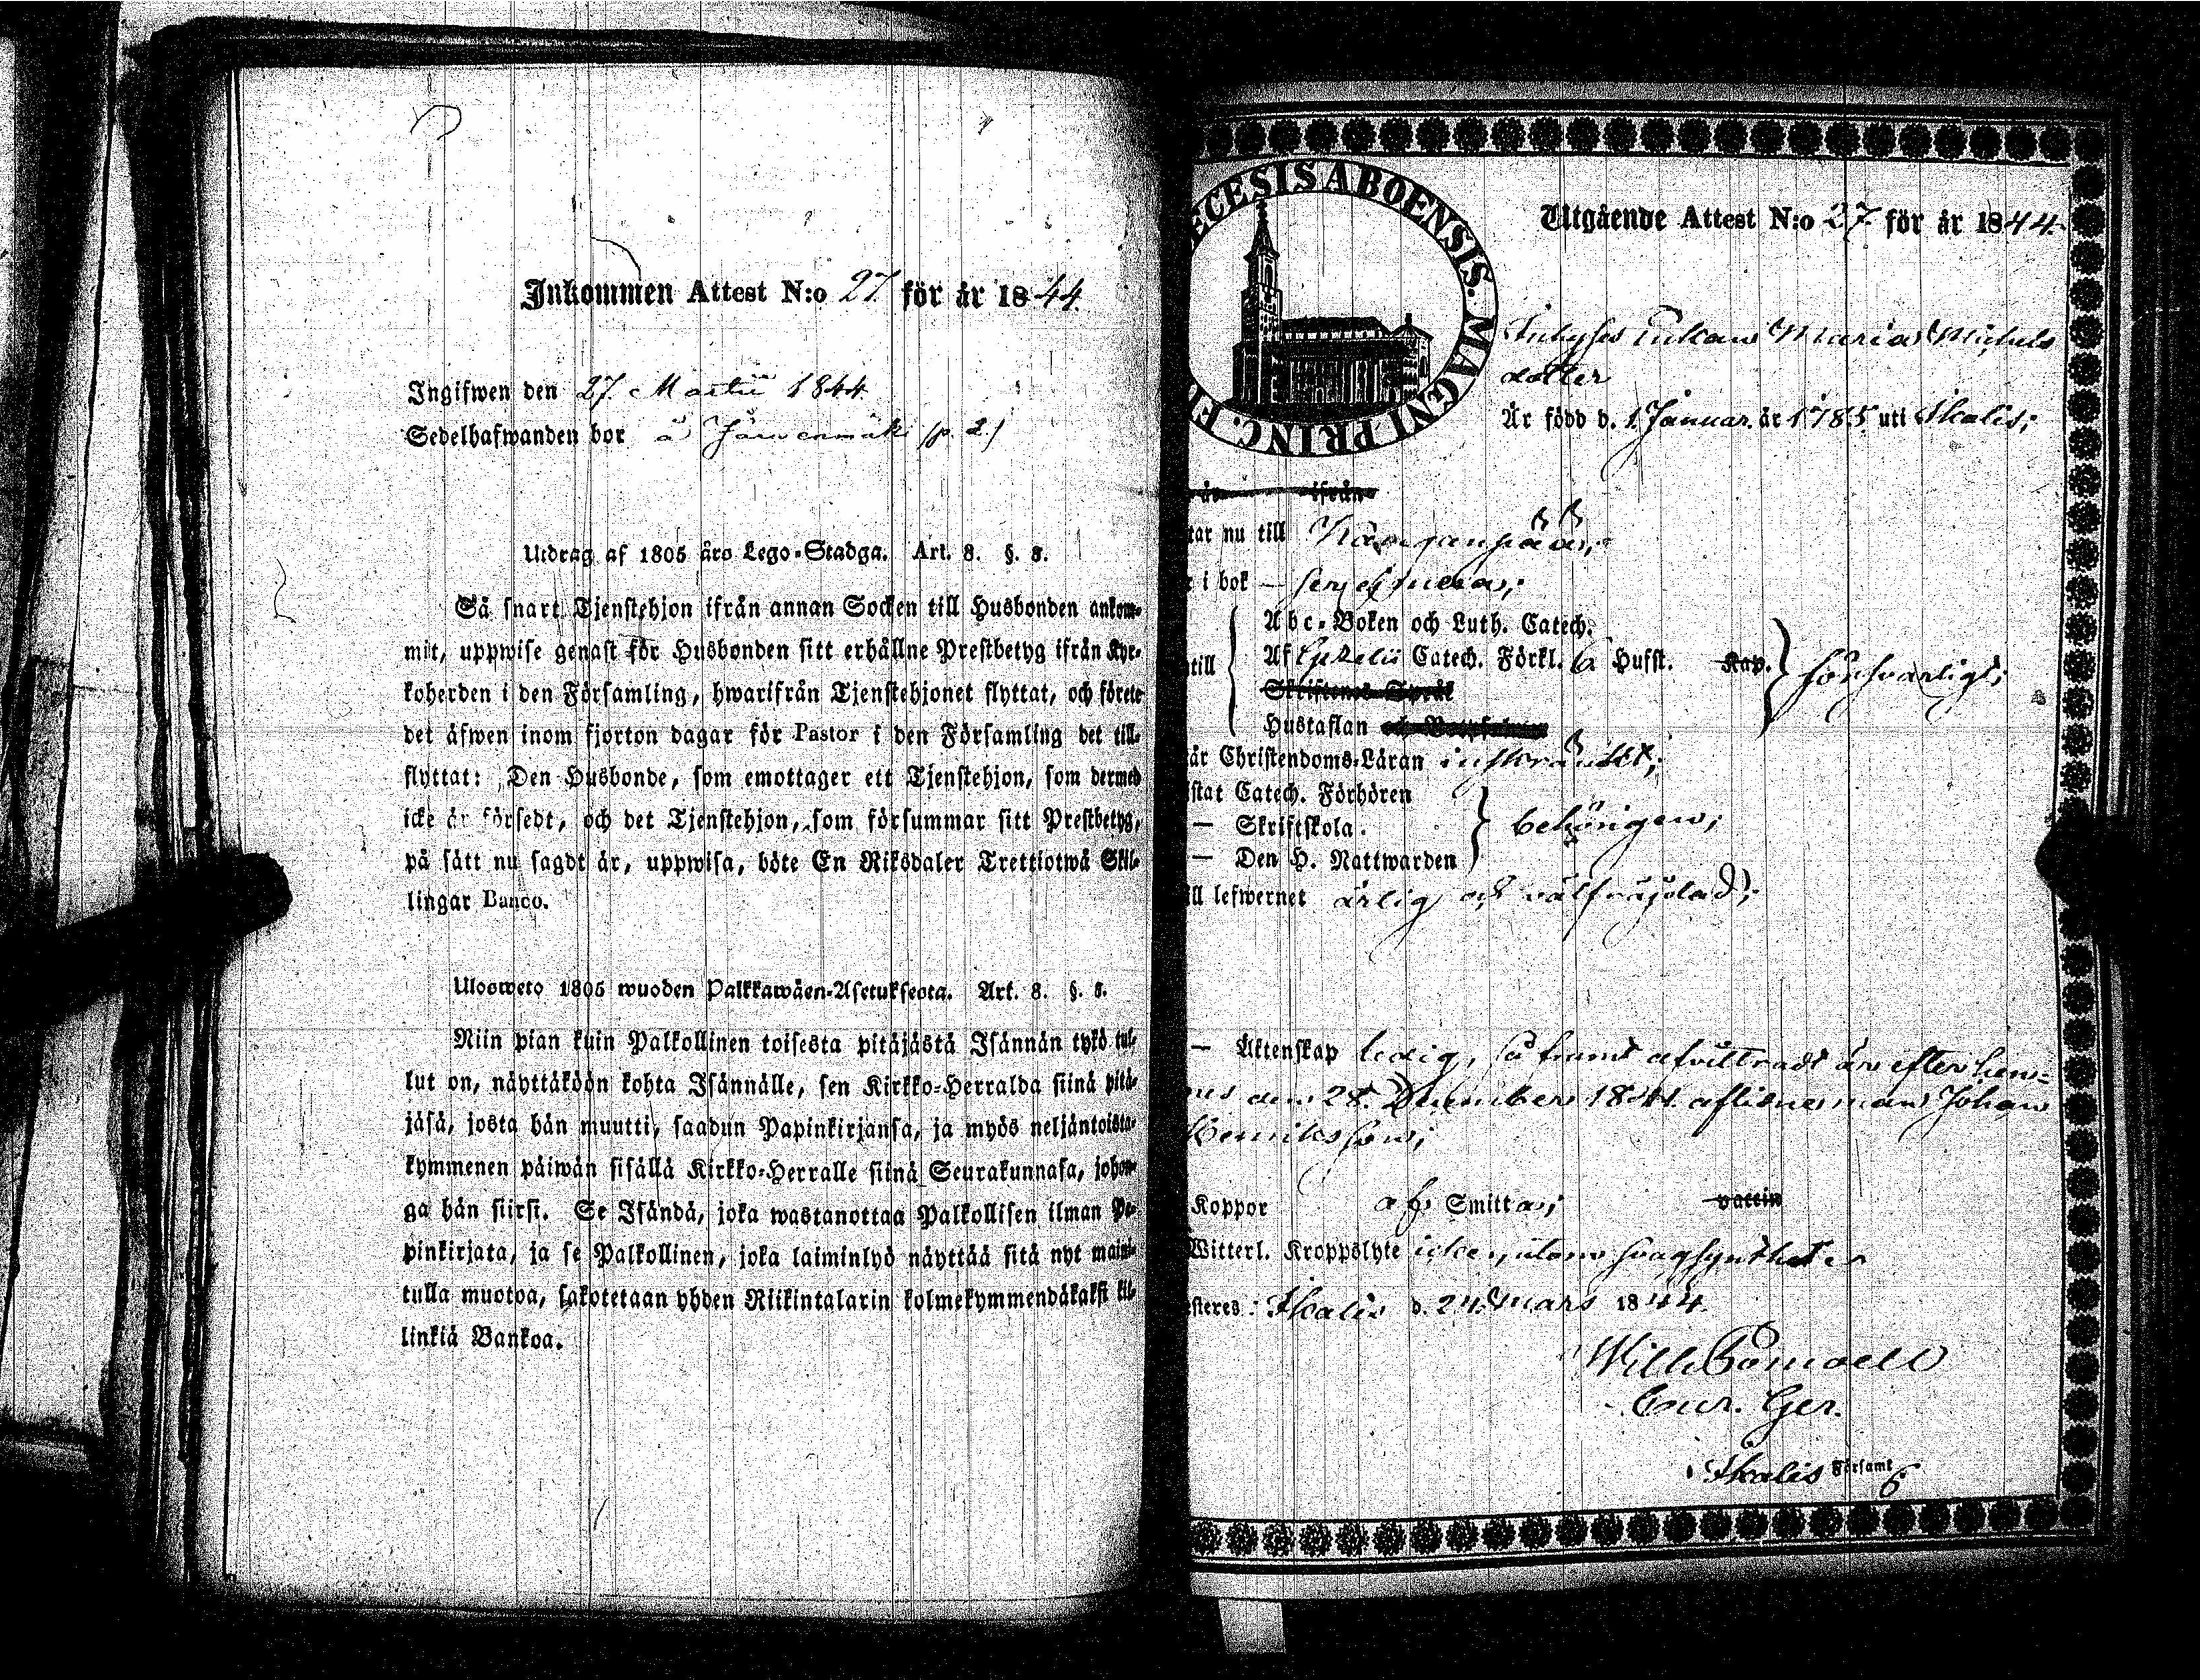 Inkommen Attest N:o 27. för år 1844.
Ingifwen den 27. Martii 1844
Sedelhafwanden bor å Järwenmäki (p. 2.)
Utdrag af 1805 års Lego-Stadga. Art. 8. §. 8.
Så snart Tjenstehjon ifrån annan Socken till Husbonden ankom-
mit, uppwise genast för Husbonden sitt erhållne Prestbetyg ifrån Kyr-
koherden i den Församling, hwarifrån Tjenstehjonet flyttat, och förete
det äfwen inom fjorton dagar för Pastor i den Församling det till-
flyttat: Den Husbonde, som emottager ett Tjenstehjon, som dermed
icke är försedt, och det Tjenstehjon, som försummar sitt Prestbetyg,
på sätt nu sagdt är, uppwisa, böte En Riksdaler Trettiotwå Skil-
lingar Banco.
Ulosweto 1805 wuoden Palkkawäen-Asetuksesta. Art. 8. §. 8.
Niin pian kuin Palkollinen toisesta pitäjästä Isännän tykö tul-
lut on, näyttäköön kohta Isännälle, sen Kirkko-Herralda siinä pitä-
jäsä, josta hän muutti, saadun Papinkirjansa, ja myös neljäntoista-
kymmenen päiwän sisällä Kirkko-Herralle siinä Seurakunnasa, johon-
ga hän siirsi. Se Isändä, joka wastanottaa Palkollisen ilman Pa-
pinkirjata, ja se Palkollinen, joka laiminlyö näyttää sitä nyt maini-
tulla muotoa, sakotetaan yhden Riikintalarin kolmekymmendäkaksi kil-
linkiä Bankoa.
ECESIS ABOENSIS. MAGNI PRINC. FI
Utgående Attest N:o 27 för år 1844.
Inhyses Enkan Maria Michels
dotter
Är född d. 1 Januar. år 1785 uti Ikalis;
år ifrån
tar nu till Kangasons;
r i bok
Abc-Boken och Luth. Catech.
till Af Gezelii Catech. Förkl. 6 Hufst. Kap. försvarligt;
Skriftenes Språk
Hustaflan och
är Christendoms-Läran inskränkt;
istat Catech. Förhören
— Skriftskola. behörigen;
— Den H. Nattwarden
ill lefwernet ärlig och välfräjdad;
— Äktenskap ledig, så framt afvittradt är efter hen-
nes den 28. December 1841 aflidne man Johan
Henriksson;
Koppor af Smittas; vaccin
Witterl. Kroppslyte icke, utom svagsynthet
esteres: Ikalis d. 24 Mars 1844.
Wilh.
Cur. Ger.
i Ikalis Församl